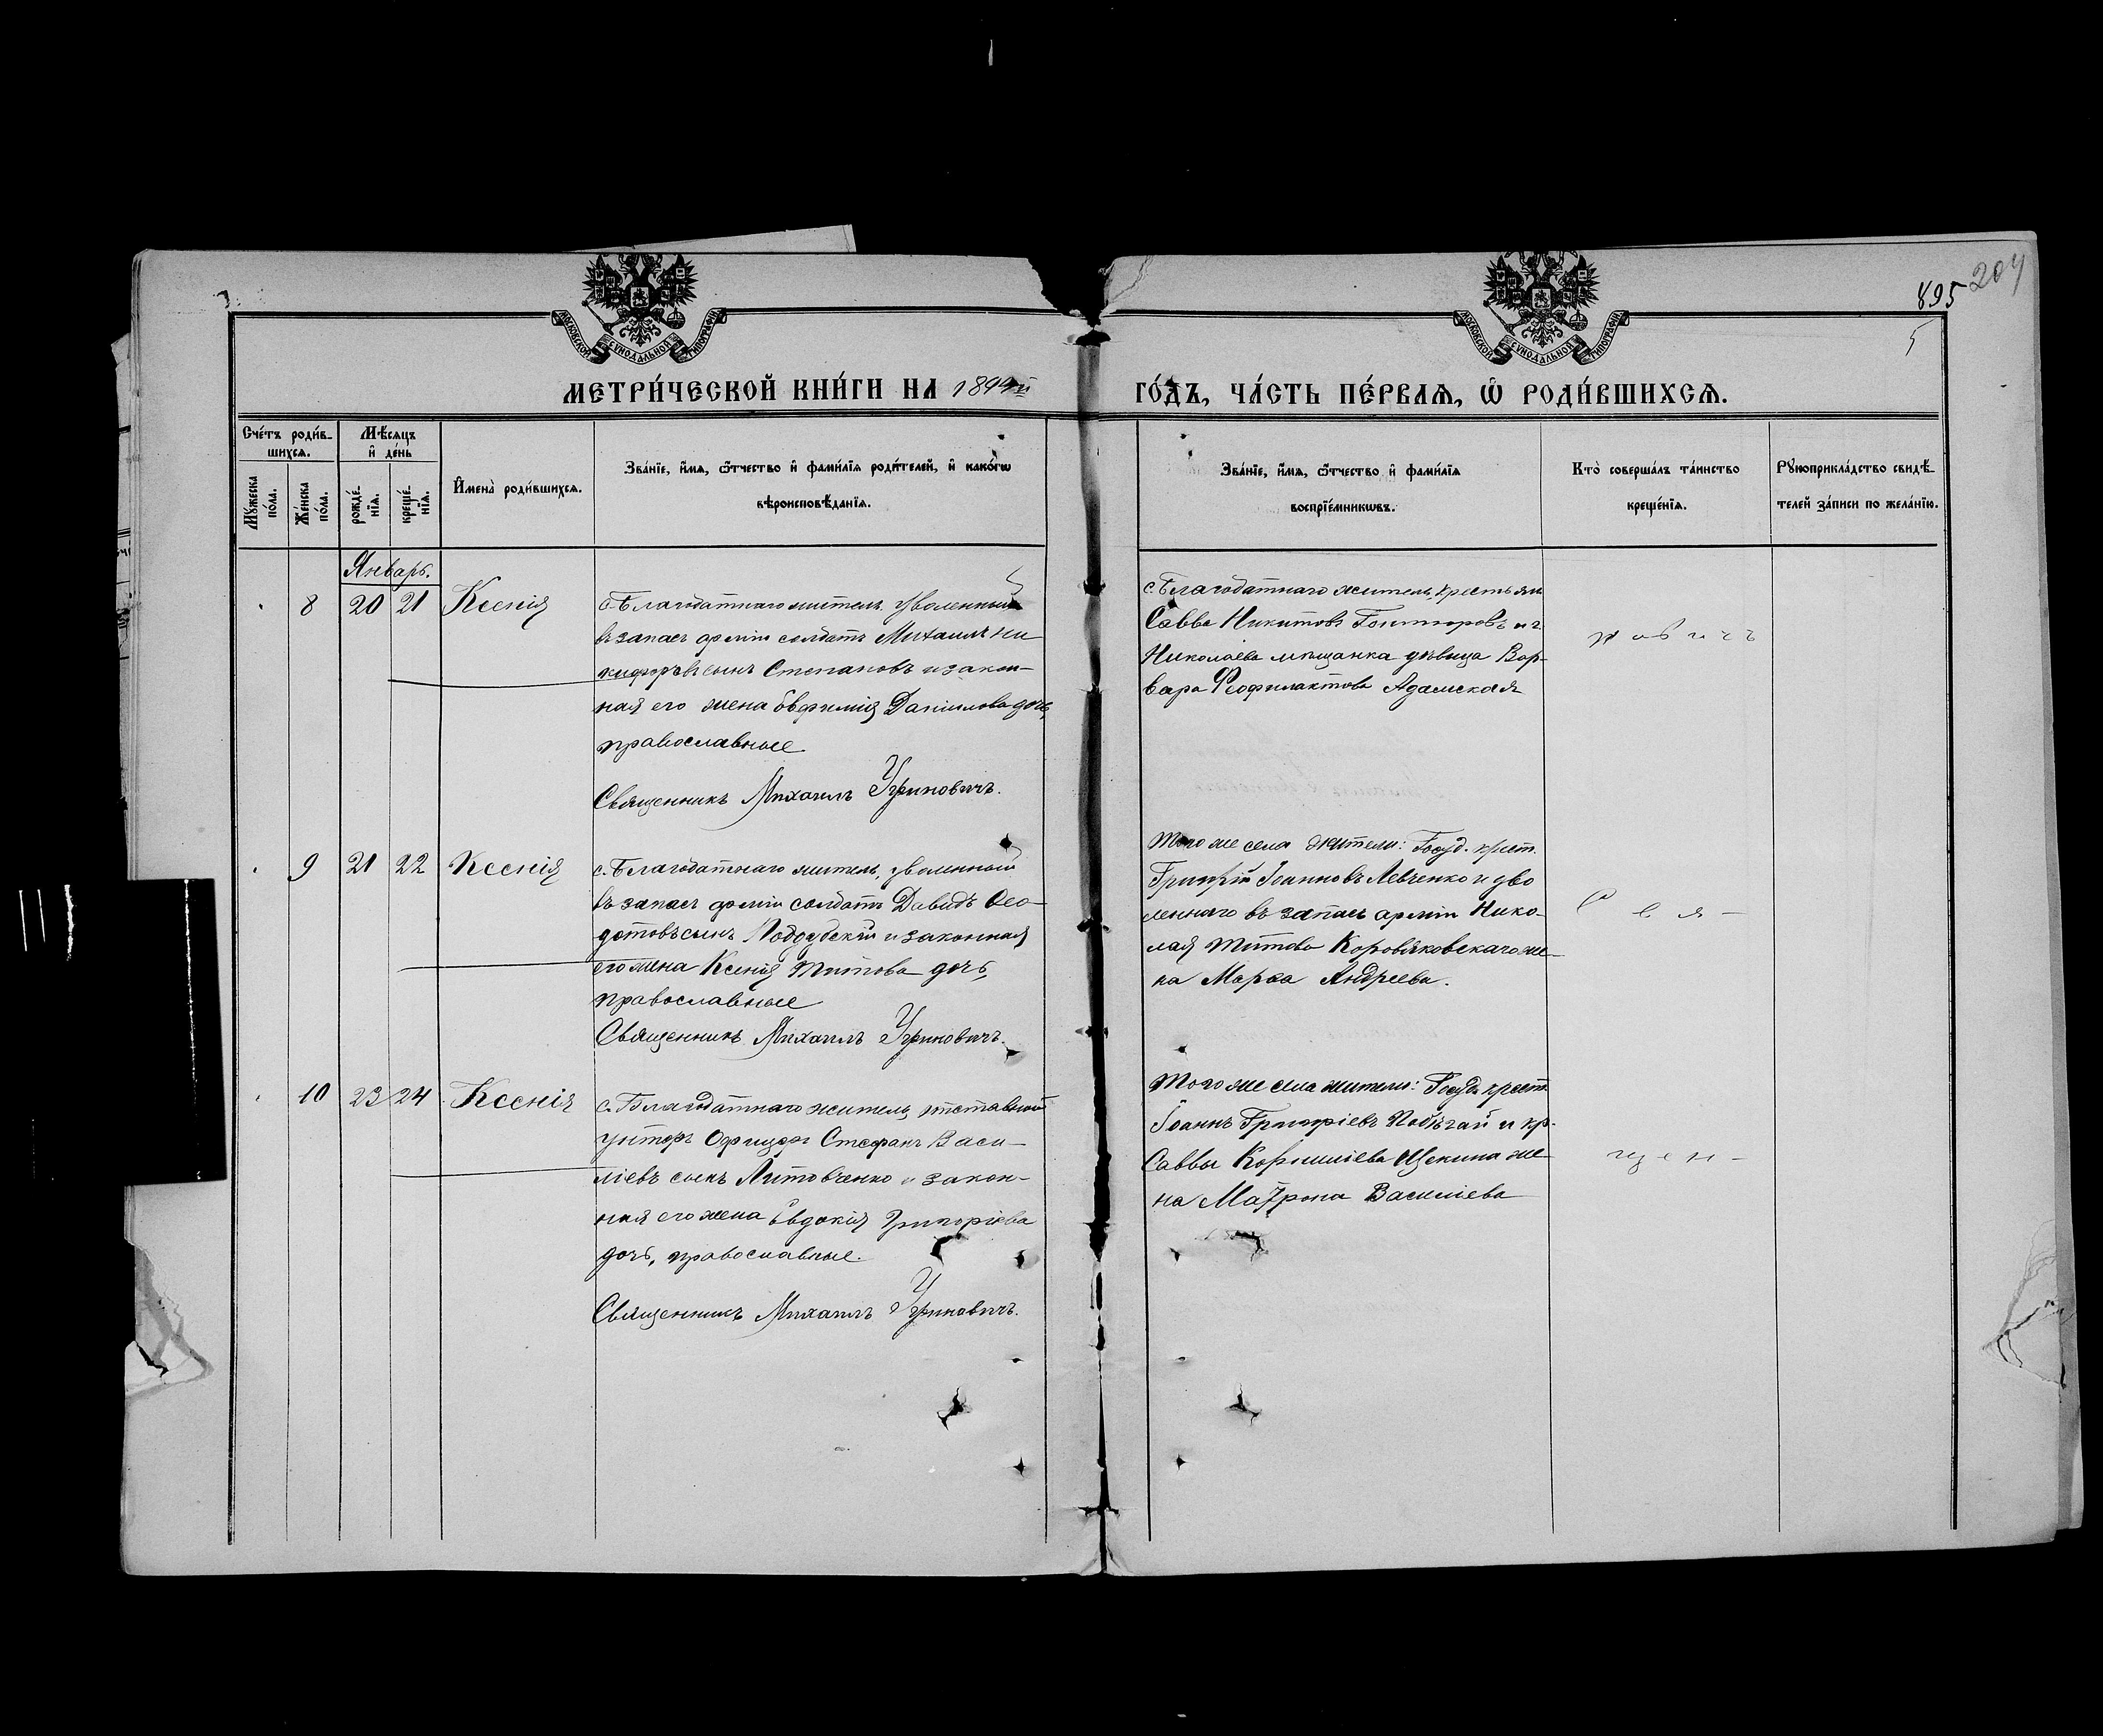 895
204
5
МОСКОВСКОЙ СѴНОДАЛЬНОЙ ТИПОГРАФІИ
МОСКОВСКОЙ СѴНОДАЛЬНОЙ ТИПОГРАФІИ
МЕТРИ́ЧЕСКОЙ КНИ́ГИ НА
ГО́ДЪ, ЧА́СТЬ ПЕ́РВАѦ, Ѡ҆ РОДИ́ВШИХСѦ.
Сче́тъ роди́в-
шихсѧ.
Мꙋ́жеска по́ла.
Же́нска по́ла.
Мѣ́сѧцъ
и҆ де́нь
рожде́-нїѧ.
креще́-нїѧ.
И҆мена̀ роди́вшихсѧ.
Зва́нїе, и҆́мѧ, ѻ҆́тчество и҆ фами́лїѧ роди́телей, и҆ како́гѡ
вѣроисповѣ́данїѧ.
Зва́нїе, и҆́мѧ, ѻ҆́тчество и҆ фами́лїѧ
воспрїе́мникѡвъ.
Кто̀ соверша́лъ та́инство
креще́нїѧ.
Рꙋкоприкла́дство свидѣ́-
телей за́писи по жела́нїю.
Январь.
8 20 21 Ксенія
с. Благодатнаго житель, уволенный
въ запасъ арміи солдатъ Михаилъ Ни-
кифоровъ сынъ Степановъ и закон-
ная его жена Евфимія Даніилова дочь,
православные
Священникъ Михаилъ Угриновичъ.
с. Благодатнаго житель, крестьян
Савва Никитовъ и г.
Николаева мѣщанка дѣвица Вар-
вара Феофилактова Адамская
9 21 22 Ксенія
с. Благодатнаго житель, уволенный
въ запасъ арміи солдатъ Давидъ Ѳео-
дотовъ сынъ Поддубскій и законная
его жена Ксенія Титова дочь,
православные
Священникъ Михаилъ Угриновичъ.
Того же села жители: Госуд. крест.
Григорій Іоанновъ Левченко и уво
леннаго въ запасъ арміи Нико-
лая Титова Коровяковскаго же-
на Марѳа Андреева.
С в я -
10 23 24 Ксенія
с. Благодатнаго житель, отставной
унтеръ Офицеръ Стефанъ Васи-
ліевъ сынъ Литовченко и закон-
ная его жена Евдокія Григоріева
дочь, православные.
Священникъ Михаилъ Угриновичъ.
Того же села жители: Госуд. крест.
Іоаннъ Григоріевъ Побѣгай и кр.
Саввы Корниліева Щекина же-
на Матрона Василіева
щ е н -